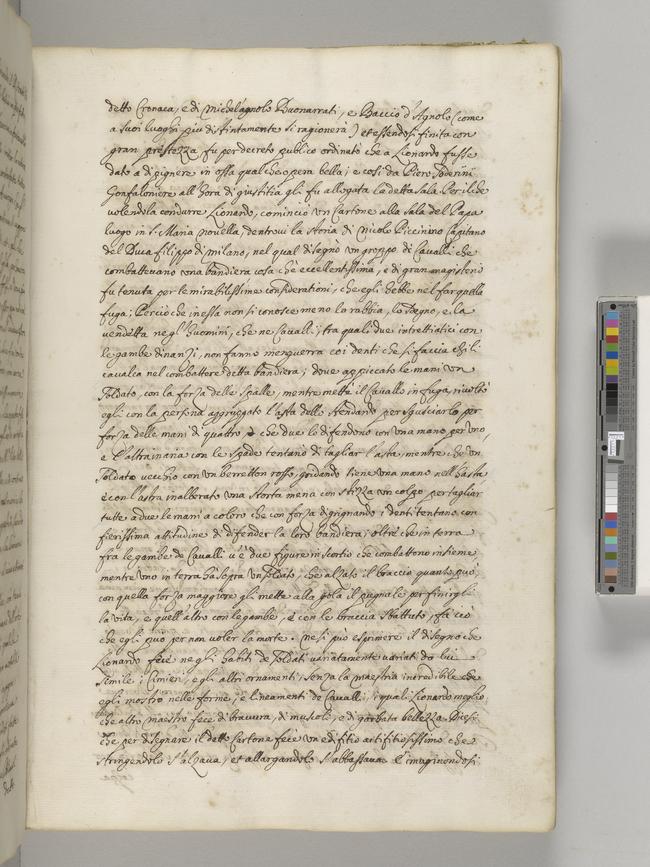 detto Cronaca, e di Michelagnolo Buonarrati, e Baccio d'Agnolo (come
a suoi luoghi piu distintamente si ragionerà) et essendosi finita con
gran prestezza fu per decreto publico ordinato che a Lionardo fusse
dato a dipignere in essa qualche opera bella; e così da Piero Soderini
Gonfaloniere all'hora di giustitia gli fu allogata la detta sala. Per il che
volendola condurre Lionardo, cominciò un Cartone alla sala del Papa
luogo in s. Maria novella, dentrovi la storia di Nicolo Piccinino Capitano
del Duca Filippo di milano, nel qual disegnò un groppo di Cavalli che
combattevano una bandiera cosa che eccellentissima, e di gran magisterio
fu tenuta per le mirabilissime considerationi, che egli hebbe nel far quella
fuga; Percio che in essa non si conosce meno la rabbia, lo sdegno, e la
vendetta negl'Huomini, che ne Cavalli; tra quali due intrecciatisi con
le gambe dinanzi, non fanno men guerra coi denti che si faccia chi li
cavalca nel combattere detta bandiera; dove appiccato le mani un
soldato, con la forza delle spalle, mentre mette il Cavallo in fuga, rivolto
egli con la persona aggrappato l'asta dello stendardo per sgusciarlo per
forza delle mani di quattro, che due lo difendono con una mano per uno,
e l'altra in aria con le spade tentano di tagliar l'asta, mentre che un
soldato vecchio con un berretton rosso, gridando tiene una mano nell'hasta
e con l'altra inalberato una storta mena con stizza un colpo per tagliar
tutte a due le mani a coloro che con forza digrignando i denti tentano con
fierissima attitudine di difender la loro bandiera; oltre che in terra
fra le gambe de Cavalli v'è due figure in scortio che combattono insieme
mentre uno in terra ha sopra un soldato, che alzato il braccio quanto può,
con quella forza maggiore gli mette alla gola il pugnale per finirgli
la vita, e quell'altro con le gambe, e con le braccia sbattuto, fa ciò
che egli può per non voler la morte. Ne si può esprimere il disegno che
Lionardo fece negli habiti de soldati variatamente variati da lui
simile i Cimieri, e gli altri ornamenti, senza la maestria incredibile che
egli mostrò nelle forme, e lineamenti de Cavalli, i quali Lionardo meglio
che altro maestro fece di bravura, di muscoli, e di garbata bellezza. Dicesi
che per disegnare il detto Cartone fece un edifitio artifitiosissimo che
stringendolo s'alzava, et allargandolo s'abbassava. E imaginandosi